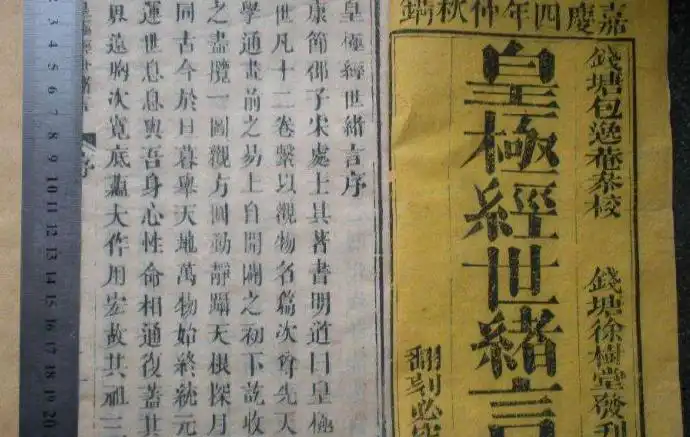 嘉慶四年仲秋鐫
錢塘包逸菴恭校
錢塘徐樹堂發刊
皇極經世緒言
翻刻必究
皇極經世緒言序
康節邵子宋處士其著書明道曰皇極
世凡十二卷繫以觀物名篇次脊先天
學通畫前之易上自開闢之初下訖收
之盡攬一圖觀方圓動靜躡天根探月
同古今於日暮舉天地萬物始終統元
運世息息與吾身心性命相通復蓋其
具遠胸次寬底蘊大作用宏故其祖三
皇極經世緒言
序
2 3 4 5 6 7 8 9 10 11 12 13 14 15 16 17 18 19 20